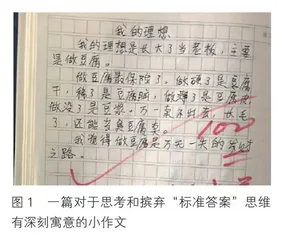 我的理想
我的理想是长大了当老板，主要
是做豆腐。
做豆腐最保险了。做硬了是豆腐
干，稀了是豆腐脑，做薄了是豆腐皮
做没了是豆浆。万一卖不出去，长毛
了，还能当臭豆腐卖。
我觉得做豆腐是万无一失的
之路。
100
图 1 一篇对于思考和摈弃“标准答案”思维
有深刻寓意的小作文